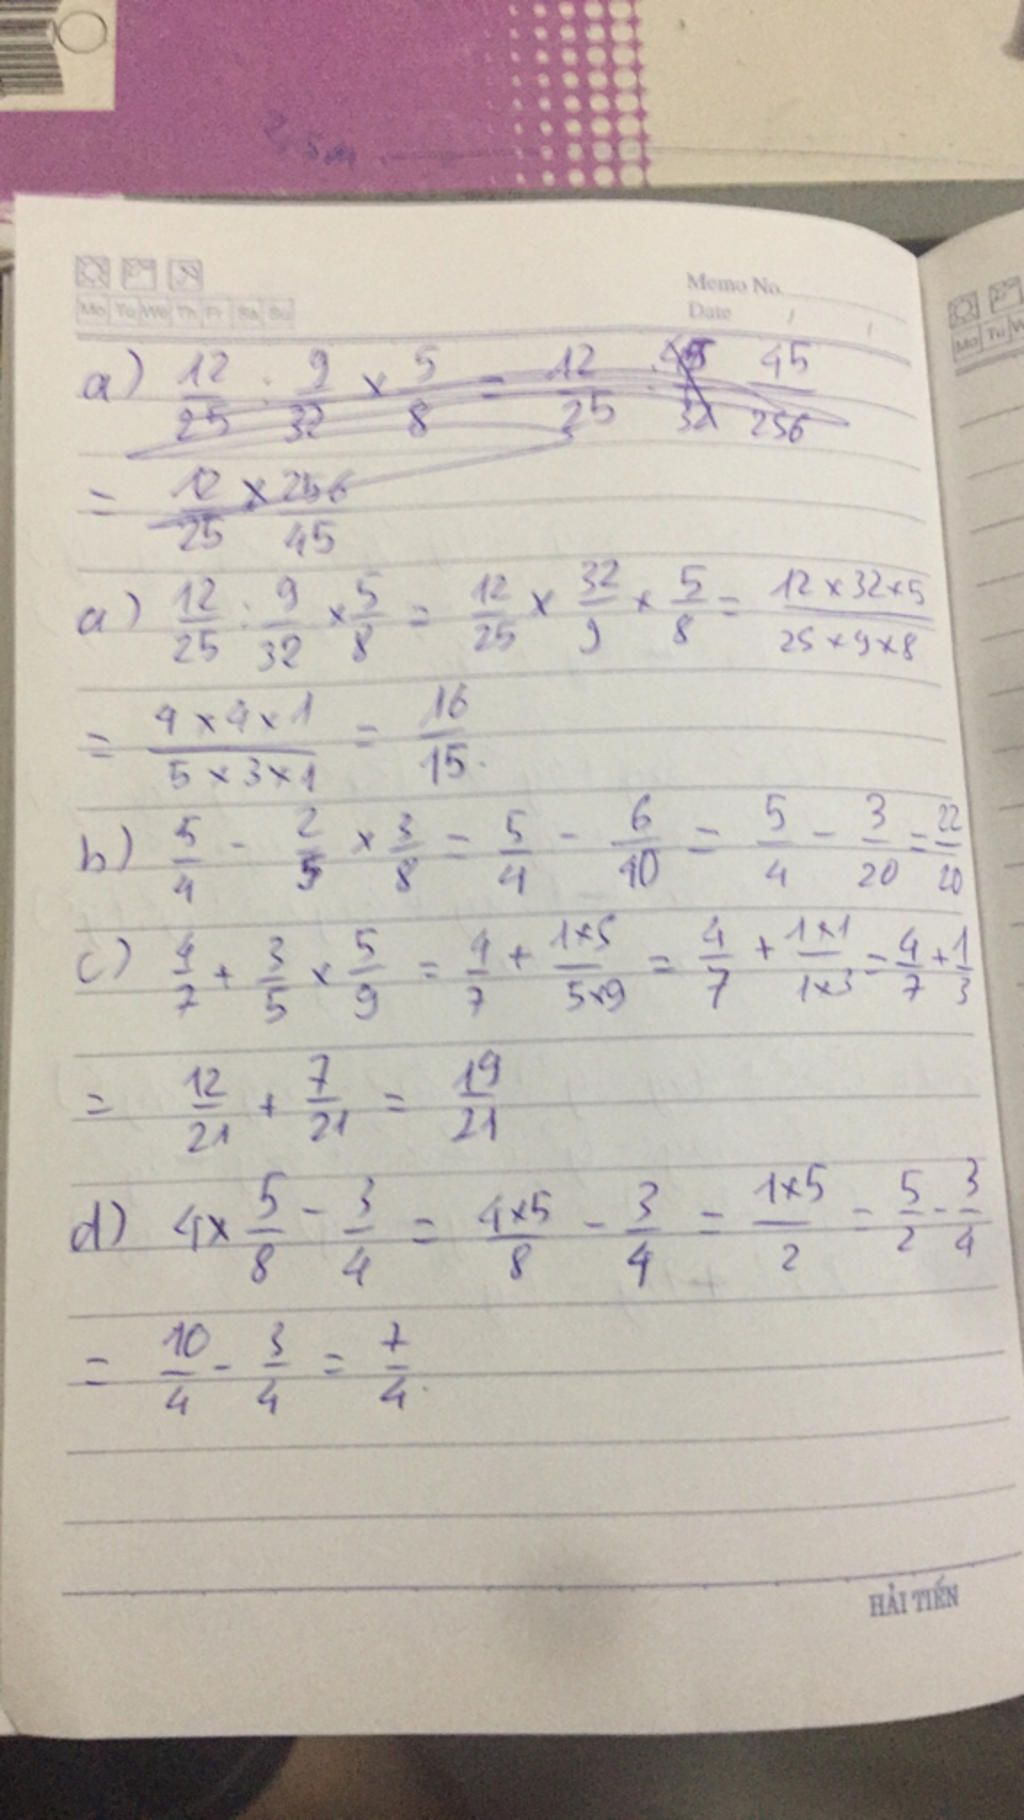 Memo No.
Date / /
Mo Tu We Th Fr Sa Su
a) 12/25 : 9/32 × 5/8 = 12/25 : 45/32 45/256
= 12/25 × 256/45
a) 12/25 : 9/32 × 5/8 = 12/25 × 32/9 × 5/8 = 12×32×5/25×9×8
= 4×4×1/5×3×1 = 16/15.
b) 5/4 - 2/5 × 3/8 = 5/4 - 6/40 = 5/4 - 3/20 = 22/20
c) 4/7 + 3/5 × 5/9 = 4/7 + 1×5/5×9 = 4/7 + 1×1/1×3 = 4/7 + 1/3
= 12/21 + 7/21 = 19/21
d) 4× 5/8 - 3/4 = 4×5/8 - 3/4 = 1×5/2 = 5/2 - 3/4
= 10/4 - 3/4 = 7/4.
HẢI TIẾN
Mo Tu